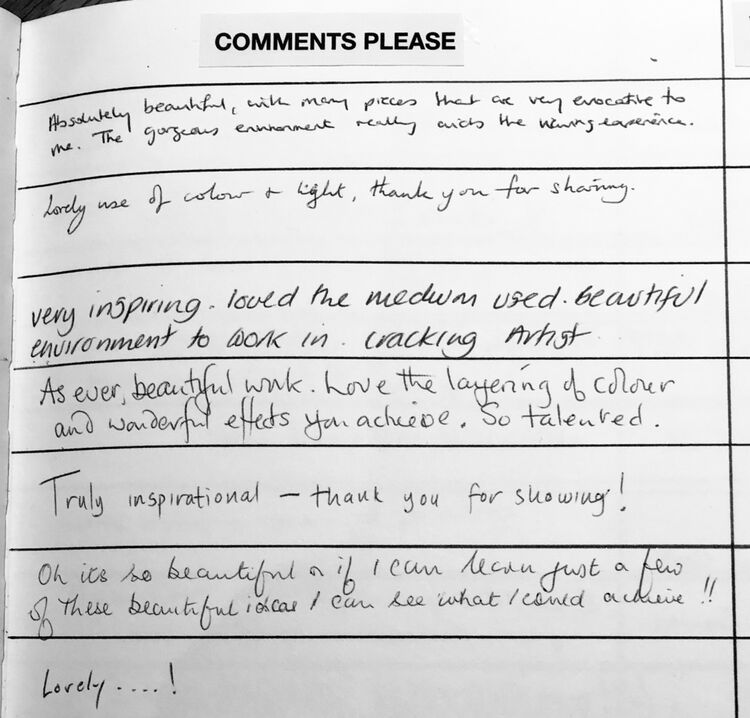 COMMENTS PLEASE
Absolutely beautiful, with many pieces that are very evocative to
me. The gorgeous environment really aids the viewing experience.
Lovely use of colour + light, thank you for sharing.
very inspiring. loved the medium used. beautiful
environment to work in. cracking Artist
As ever, beautiful work. Love the layering of colour
and wonderful effects you achieve. So talented.
Truly inspirational – thank you for showing!
Oh its so beautiful if I can learn just a few
of these beautiful ideas I can see what I could achieve !!
Lovely ....!